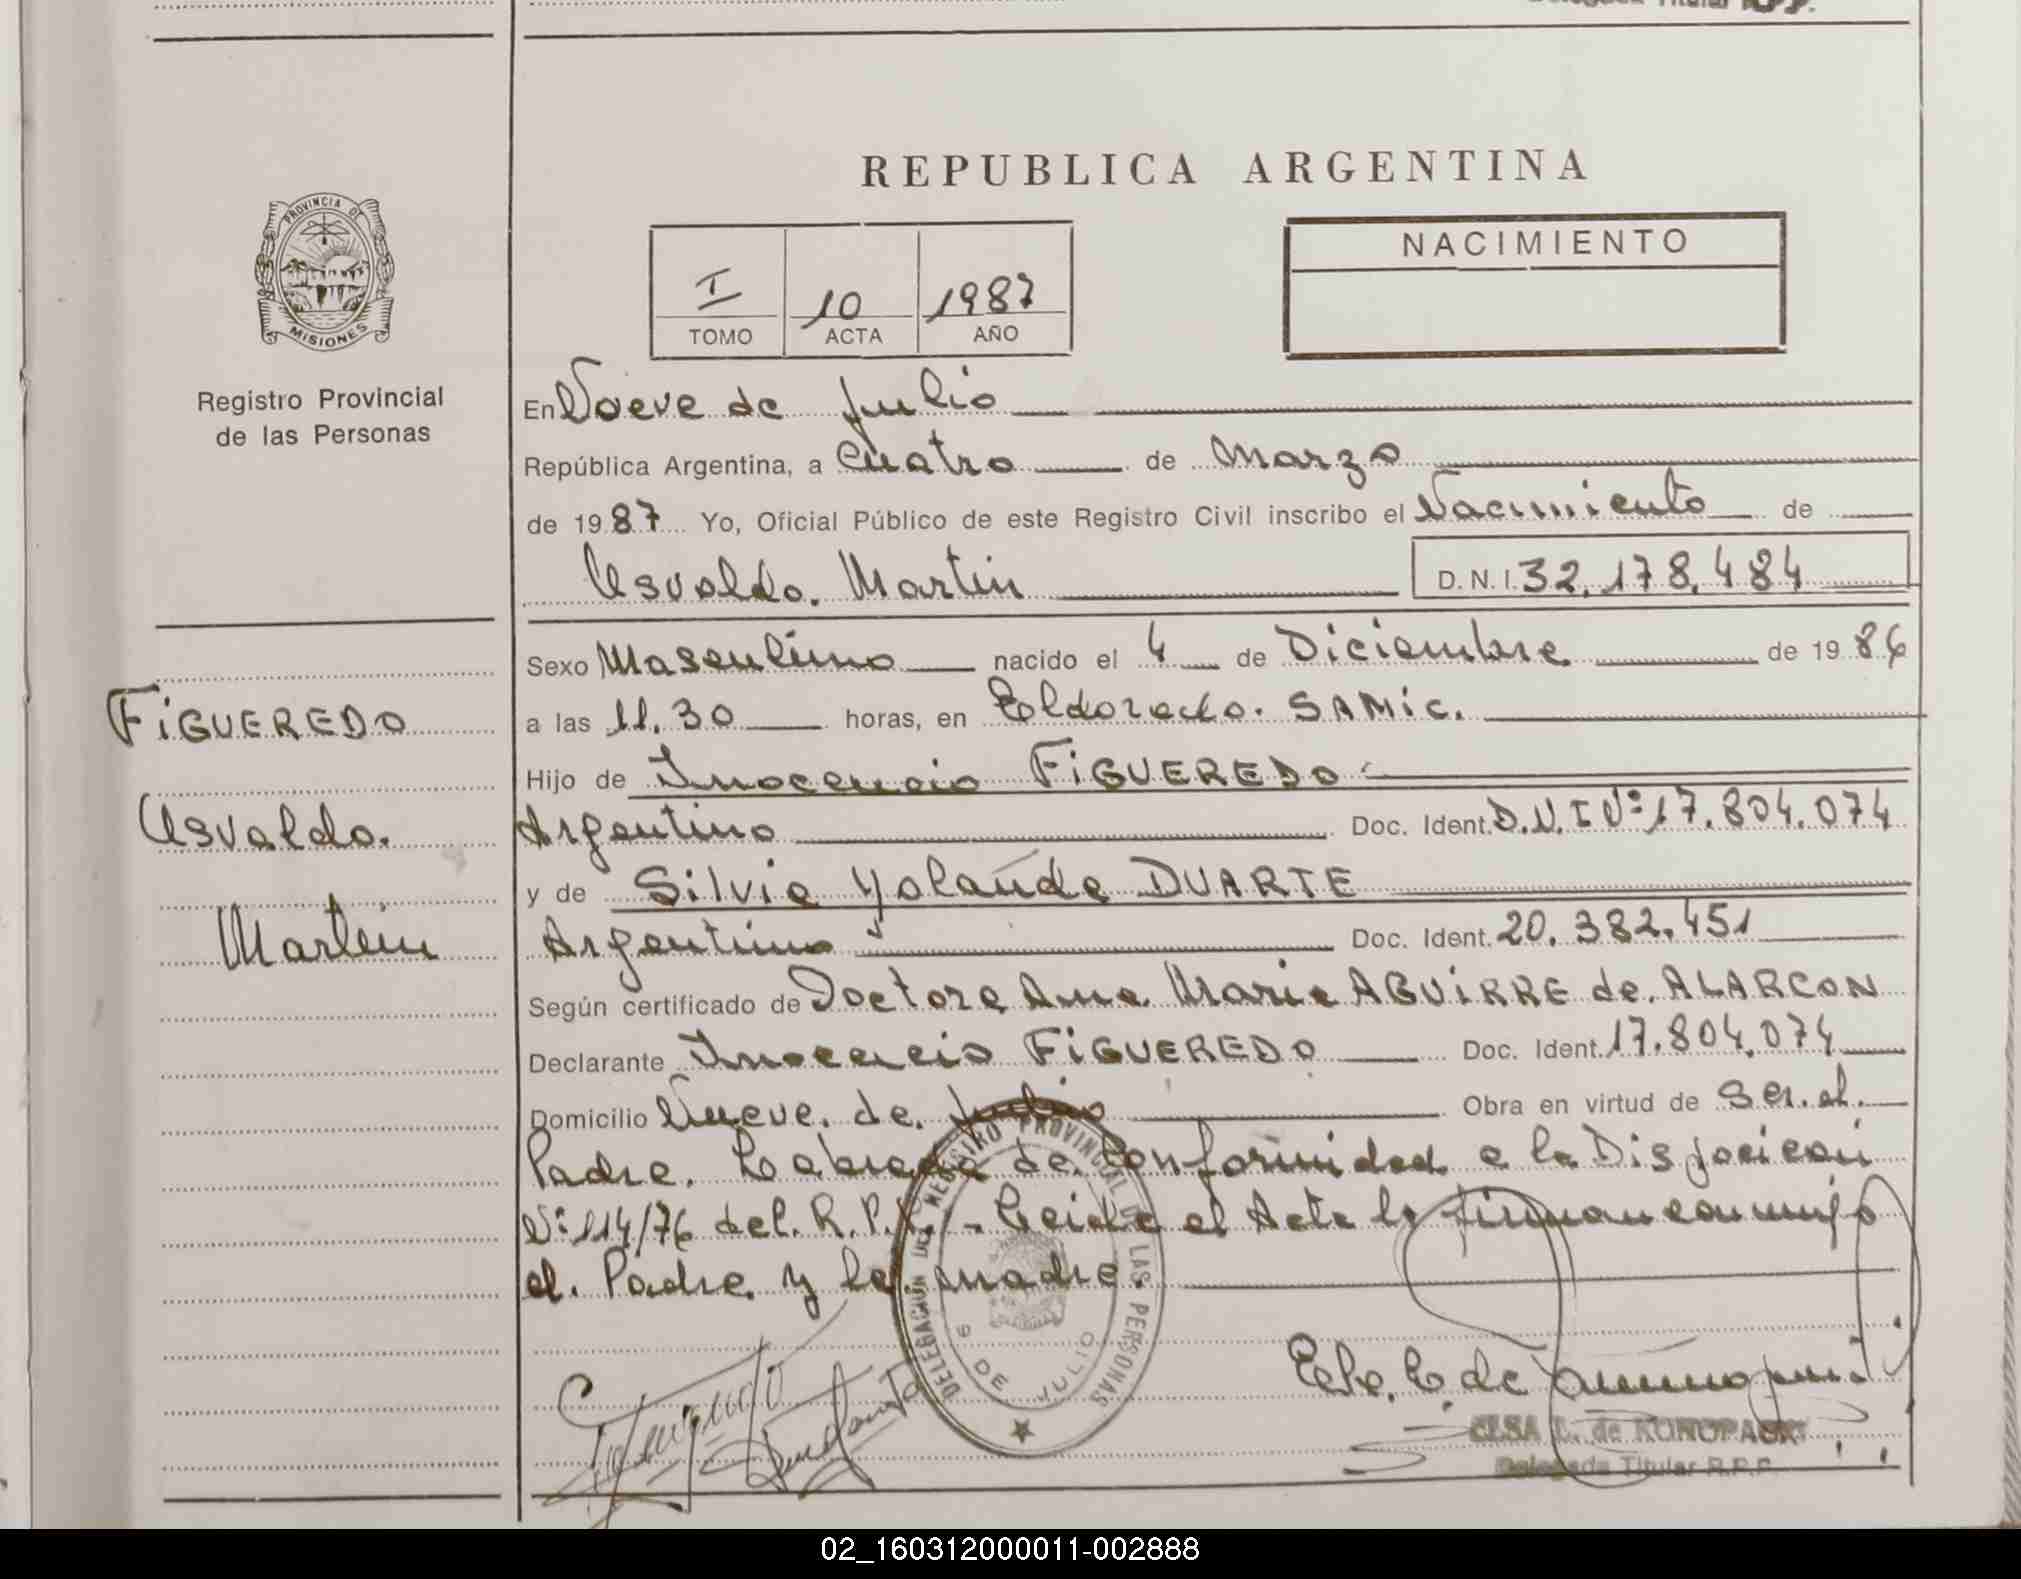 REPUBLICA ARGENTINA
PROVINCIA DE
MISIONES
Registro Provincial
de las Personas
I 10 1987
TOMO ACTA AÑO
NACIMIENTO
En Nueve de Julio
República Argentina, a Cuatro de Marzo
de 1987 Yo, Oficial Público de este Registro Civil inscribo el Nacimiento de
Osvaldo. Martin D.N.I. 32.178.484
Sexo Masculino nacido el 4 de Diciembre de 1986
a las 11.30 horas, en Eldorado. SAMiC.
Hijo de Inocencio FiGUEREDO
Argentino Doc. Ident. D.N.I Nº 17.804.074
y de Silvia Yolanda DUARTE
Argentina Doc. Ident. 20.382.451
Según certificado de Doctora Ana Maria AGUiRRE de ALARCON
Declarante Inocencio FiGUEREDO Doc. Ident. 17.804.074
Domicilio Nueve de Julio Obra en virtud de Ser el
Padre. Labrada de Conformidad a la Disposicion
Nº 114/76 del R.P.P. - Leida el Acta la firman conmigo
el Padre y la madre.
FiGUEREDO
Osvaldo.
Martin
DELEGACIÓN DEL REGISTRO PROVINCIAL DE LAS PERSONAS
9 DE JULIO
ELSA L. de KONOPACKI
Delegada Titular R.P.P.
02_160312000011-002888